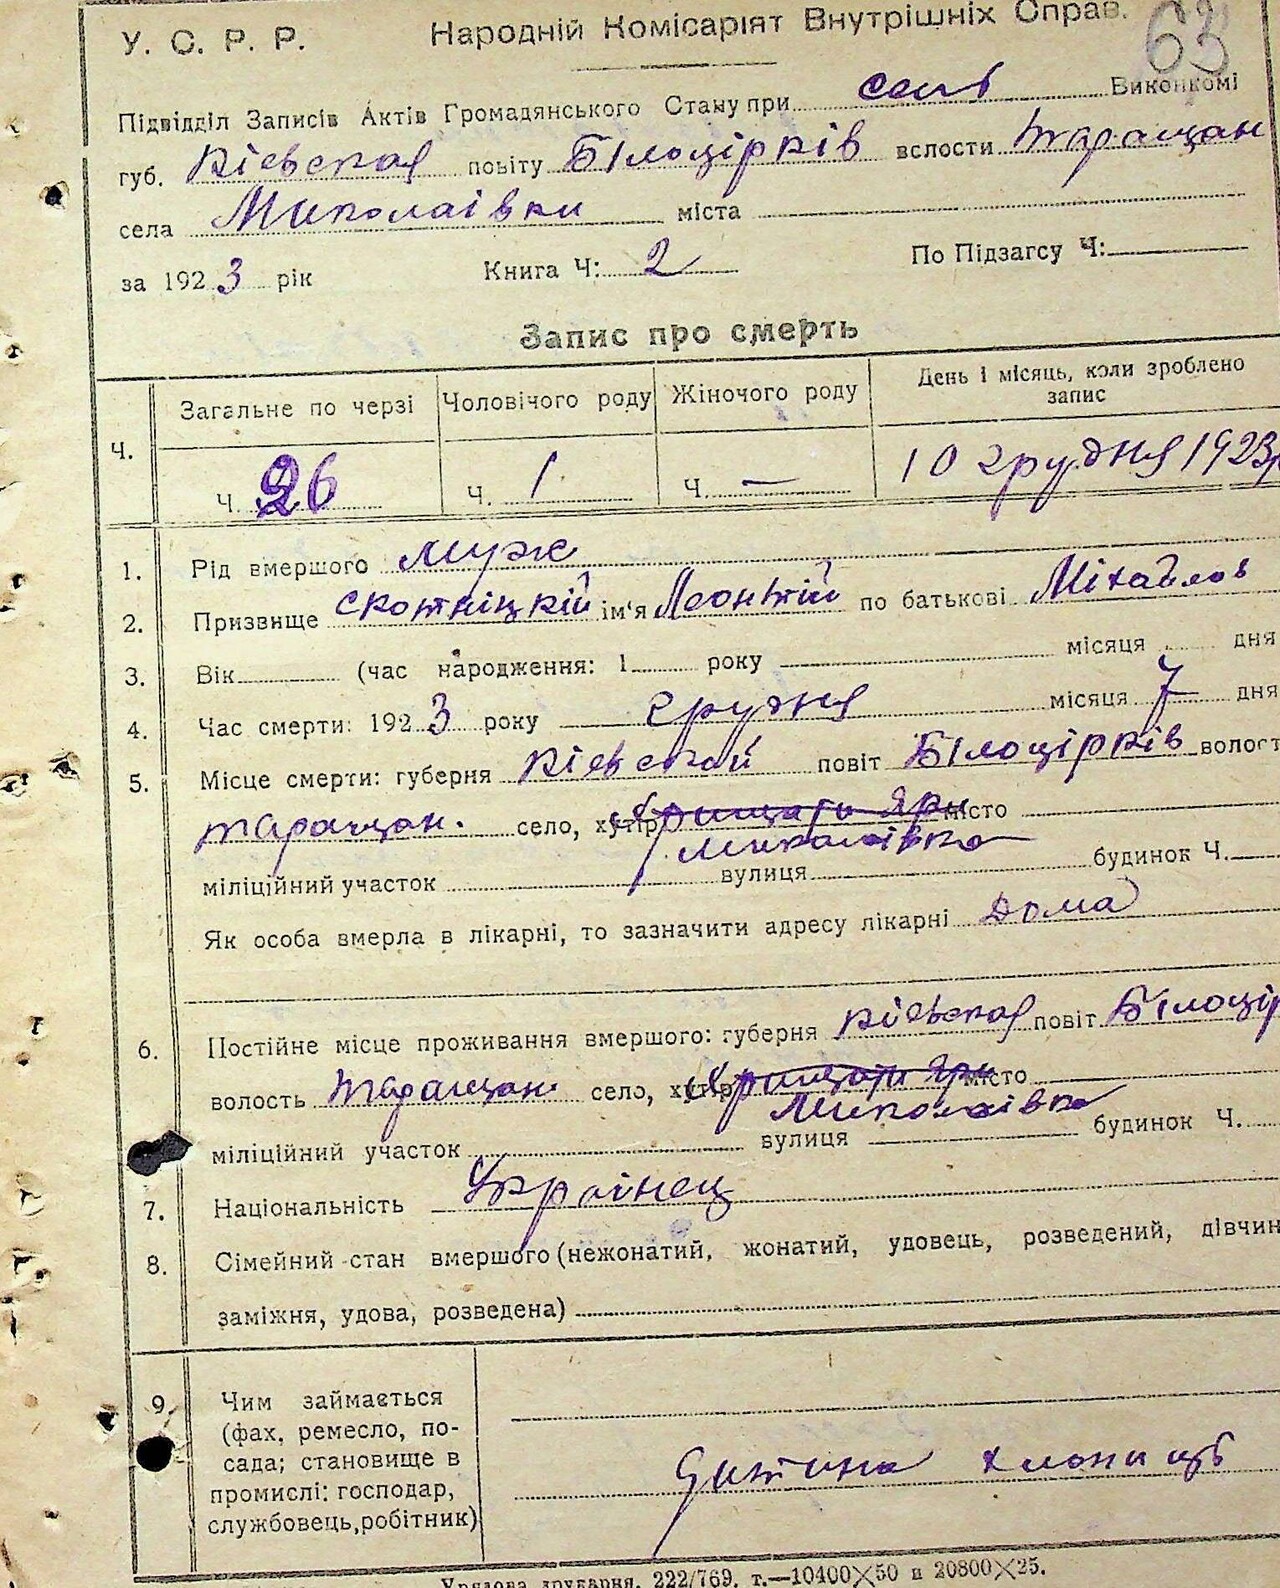 63
У. С. Р. Р. Народній Комісаріят Внутрішніх Справ.
Підвідділ Записів Актів Громадянського Стану при сельб Виконкомі
губ. Кіевская повіту Білоцірків вслости Таращан
села Миколаівки міста
за 1923 рік Книга Ч: 2 По Підзагсу Ч:
Запис про смерть
Ч. Загальне по черзі Чоловічого роду Жіночого роду День і місяць, коли зроблено запис
Ч. 26 Ч. 1 Ч. — 10 грудня 1923р
1. Рід вмершого муж
2. Призвище Скотніцкій ім'я Леонтій по батькові Міхайлов
3. Вік (час народження: 1 року місяця дня
4. Час смерти: 1923 року грудня місяця 7 дня
5. Місце смерти: губерня Кіевской повіт Білоцірків волост
таращан. село, хутір місто
Миколаівка
міліційний участок вулиця будинок Ч.
Як особа вмерла в лікарні, то зазначити адресу лікарні Дома
6. Постійне місце проживання вмершого: губерня Кіевская повіт Білоцір
волость Таращан село, хутір місто
Миколаівка
міліційний участок вулиця будинок Ч.
7. Національність Украінец
8. Сімейний стан вмершого (нежонатий, жонатий, удовець, розведений, дівчин
заміжня, удова, розведена)
9. Чим займається
(фах, ремесло, по-
сада; становище в
промислі: господар,
службовець, робітник)
Дитина хлопиць
Урядова друкарня. 222/769. т.—10400×50 и 20800×25.